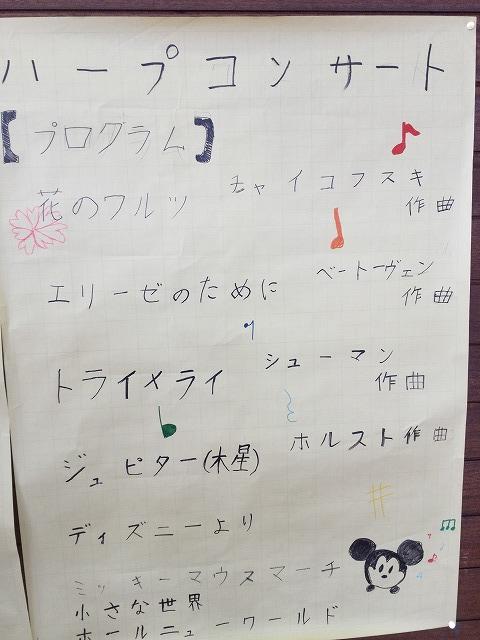 ハープコンサート
【プログラム】
花のワルツ
チャイコフスキ
作曲
エリーゼのために
ベートーヴェン
作曲
トライメライ
シューマン
作曲
ジュピター(木星)
ホルスト作曲
ディズニーより
ミッキーマウスマーチ
小さな世界
ホールニューワールド